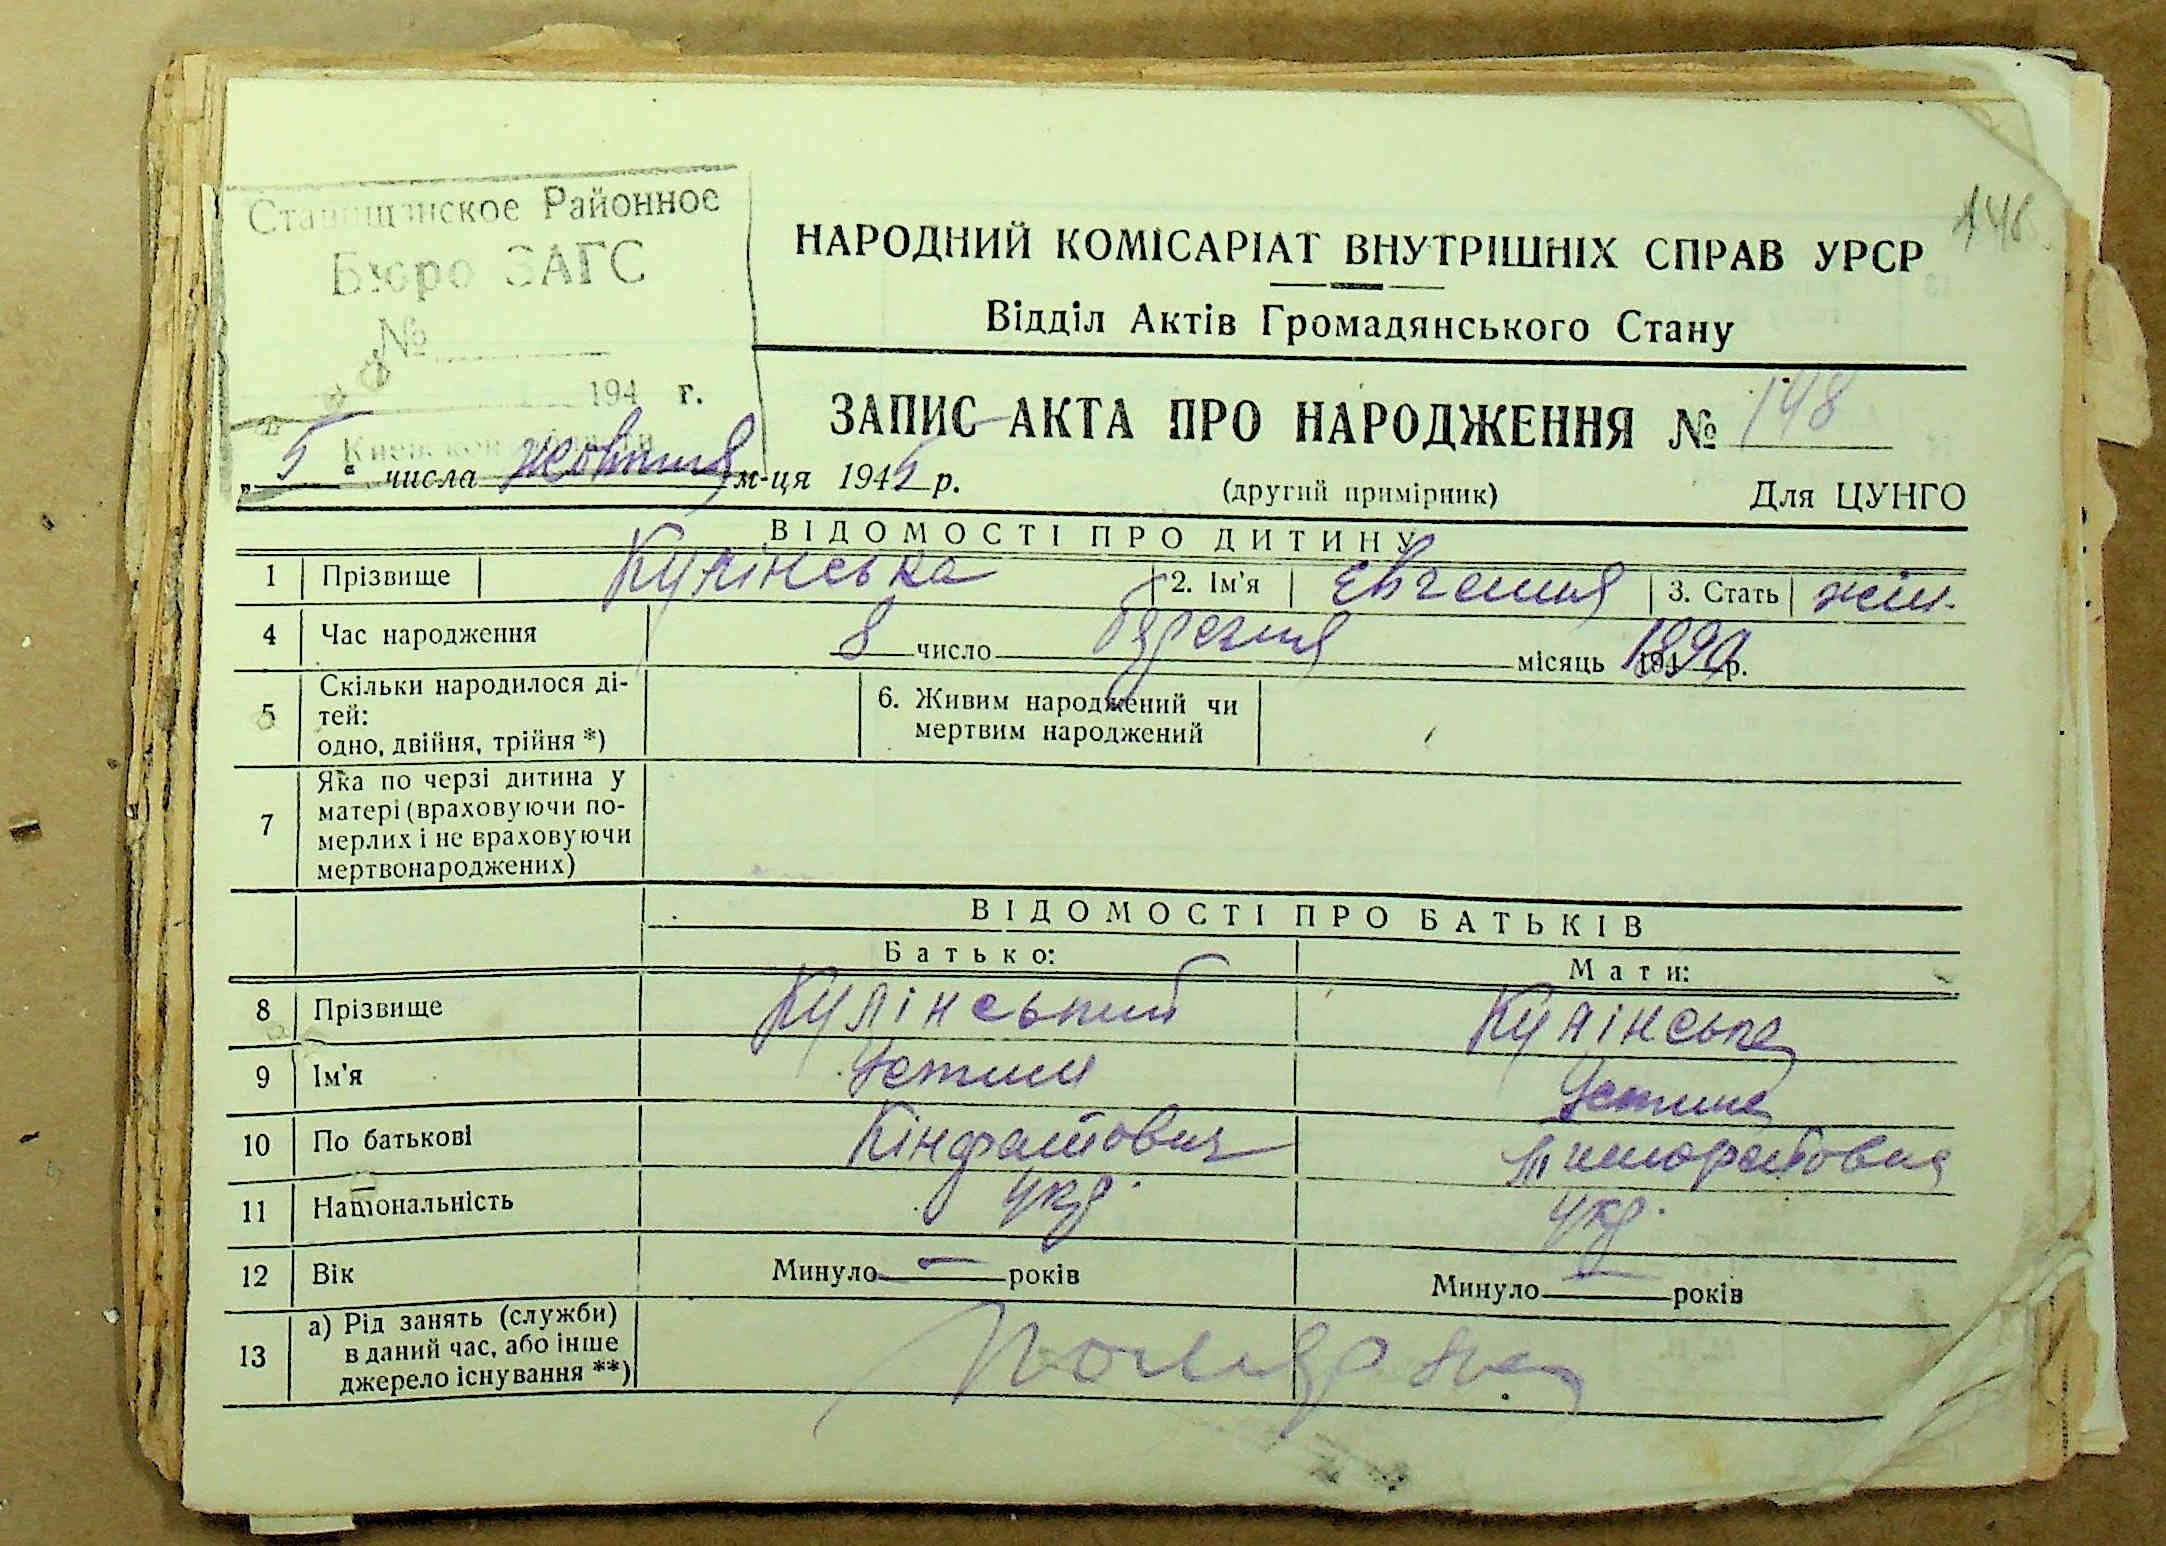 Ставищанское Районное
Бюро ЗАГС
№
194 г.
148
НАРОДНИЙ КОМІСАРІАТ ВНУТРІШНІХ СПРАВ УРСР
Відділ Актів Громадянського Стану
ЗАПИС АКТА ПРО НАРОДЖЕННЯ № 148
„ 5 “ числа жовтня м-ця 1945 р.
(другий примірник) Для ЦУНГО
ВІДОМОСТІ ПРО ДИТИНУ
1 Прізвище Кулінська 2. Ім'я Евгения 3. Стать жін.
4 Час народження 8 число березня місяць 1890 р.
5 Скільки народилося ді-
тей:
одно, двійня, трійня *)
6. Живим народжений чи
мертвим народжений
7 Яка по черзі дитина у
матері (враховуючи по-
мерлих і не враховуючи
мертвонароджених)
ВІДОМОСТІ ПРО БАТЬКІВ
Батько: Мати:
8 Прізвище Кулінський Кулінська
9 Ім'я Устим Устина
10 По батькові
11 Національність укр. укр.
12 Вік Минуло — років Минуло — років
13 а) Рід занять (служби)
в даний час, або інше
джерело існування **)